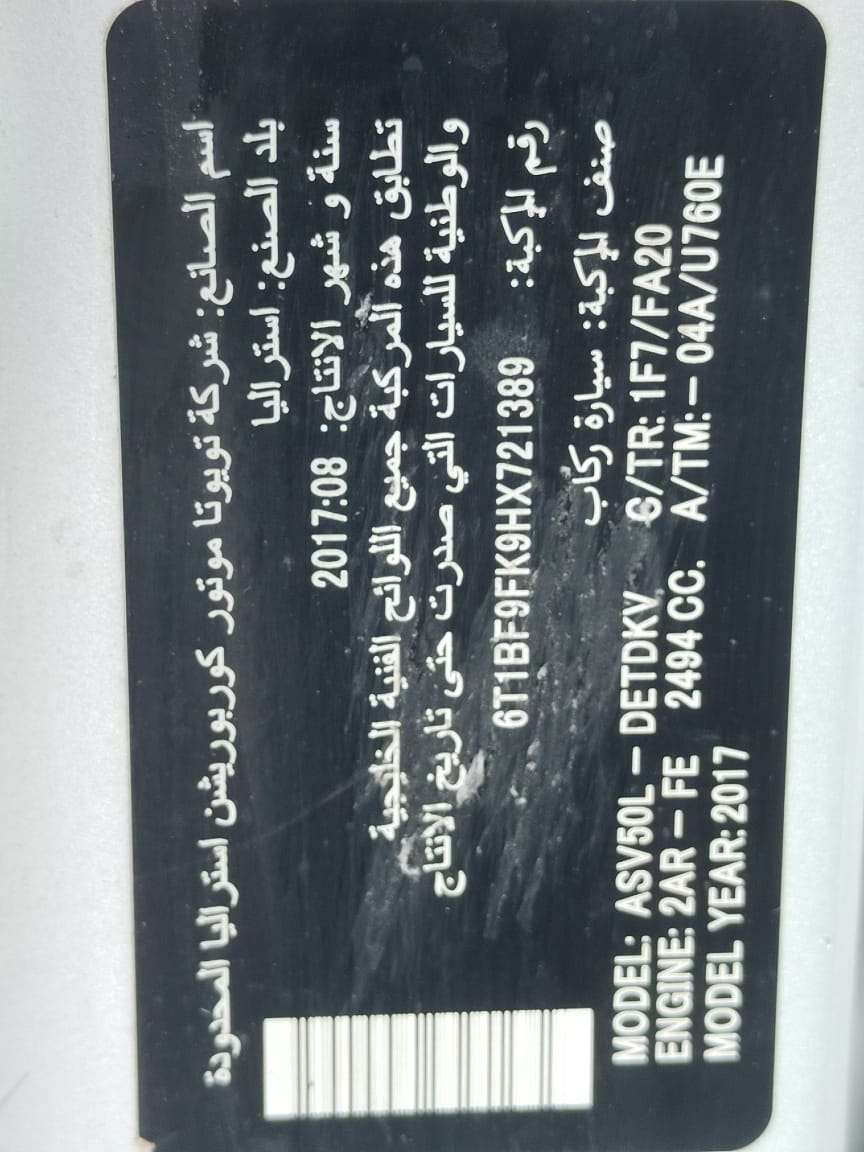 اسم الصانع: شركة تويوتا موتور كوربوريشن استراليا المحدودة
بلد الصنع: استراليا
سنة و شهر الانتاج: 2017:08
تطابق هذه المركبة جميع اللوائح الفنية الخليجية
والوطنية للسيارات التي صدرت حتى تاريخ الانتاج
رقم المركبة: 6T1BF9FK9HX721389
صنف المركبة: سيارة ركاب
MODEL: ASV50L – DETDKV C/TR: 1F7/FA20
ENGINE: 2AR – FE 2494 CC. A/TM: – 04A/U760E
MODEL YEAR: 2017